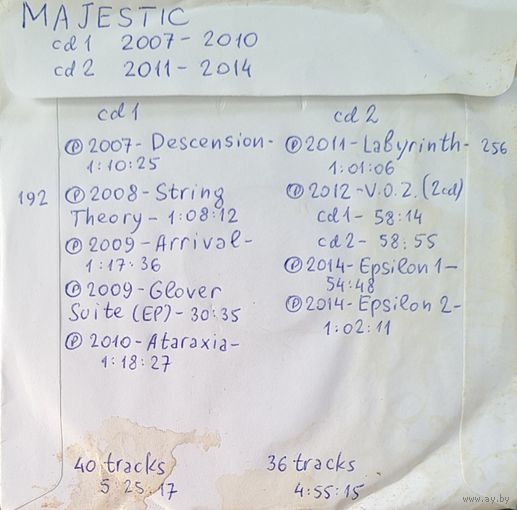 MAJESTIC
cd1 2007-2010
cd2 2011-2014
cd1
℗ 2007-Descension-
1:10:25
192
℗ 2008-String
Theory-1:08:12
℗ 2009-Arrival-
1:17:36
℗ 2009-Glover
Suite (EP)-30:35
℗ 2010-Ataraxia-
1:18:27
40 tracks
5:25:17
cd2
℗ 2011-Labyrinth- 256
1:01:06
℗ 2012-V.O.Z.(2cd)
cd1-58:14
cd2-58:55
℗ 2014-Epsilon 1-
54:48
℗ 2014-Epsilon 2-
1:02:11
36 tracks
4:55:15
www.ay.by